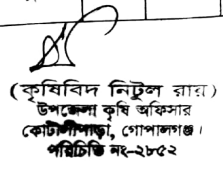 (কৃষিবিদ নিটুল রায়)
উপজেলা কৃষি অফিসার
কোটালীপাড়া, গোপালগঞ্জ।
পরিচিতি নং-২৮৫২